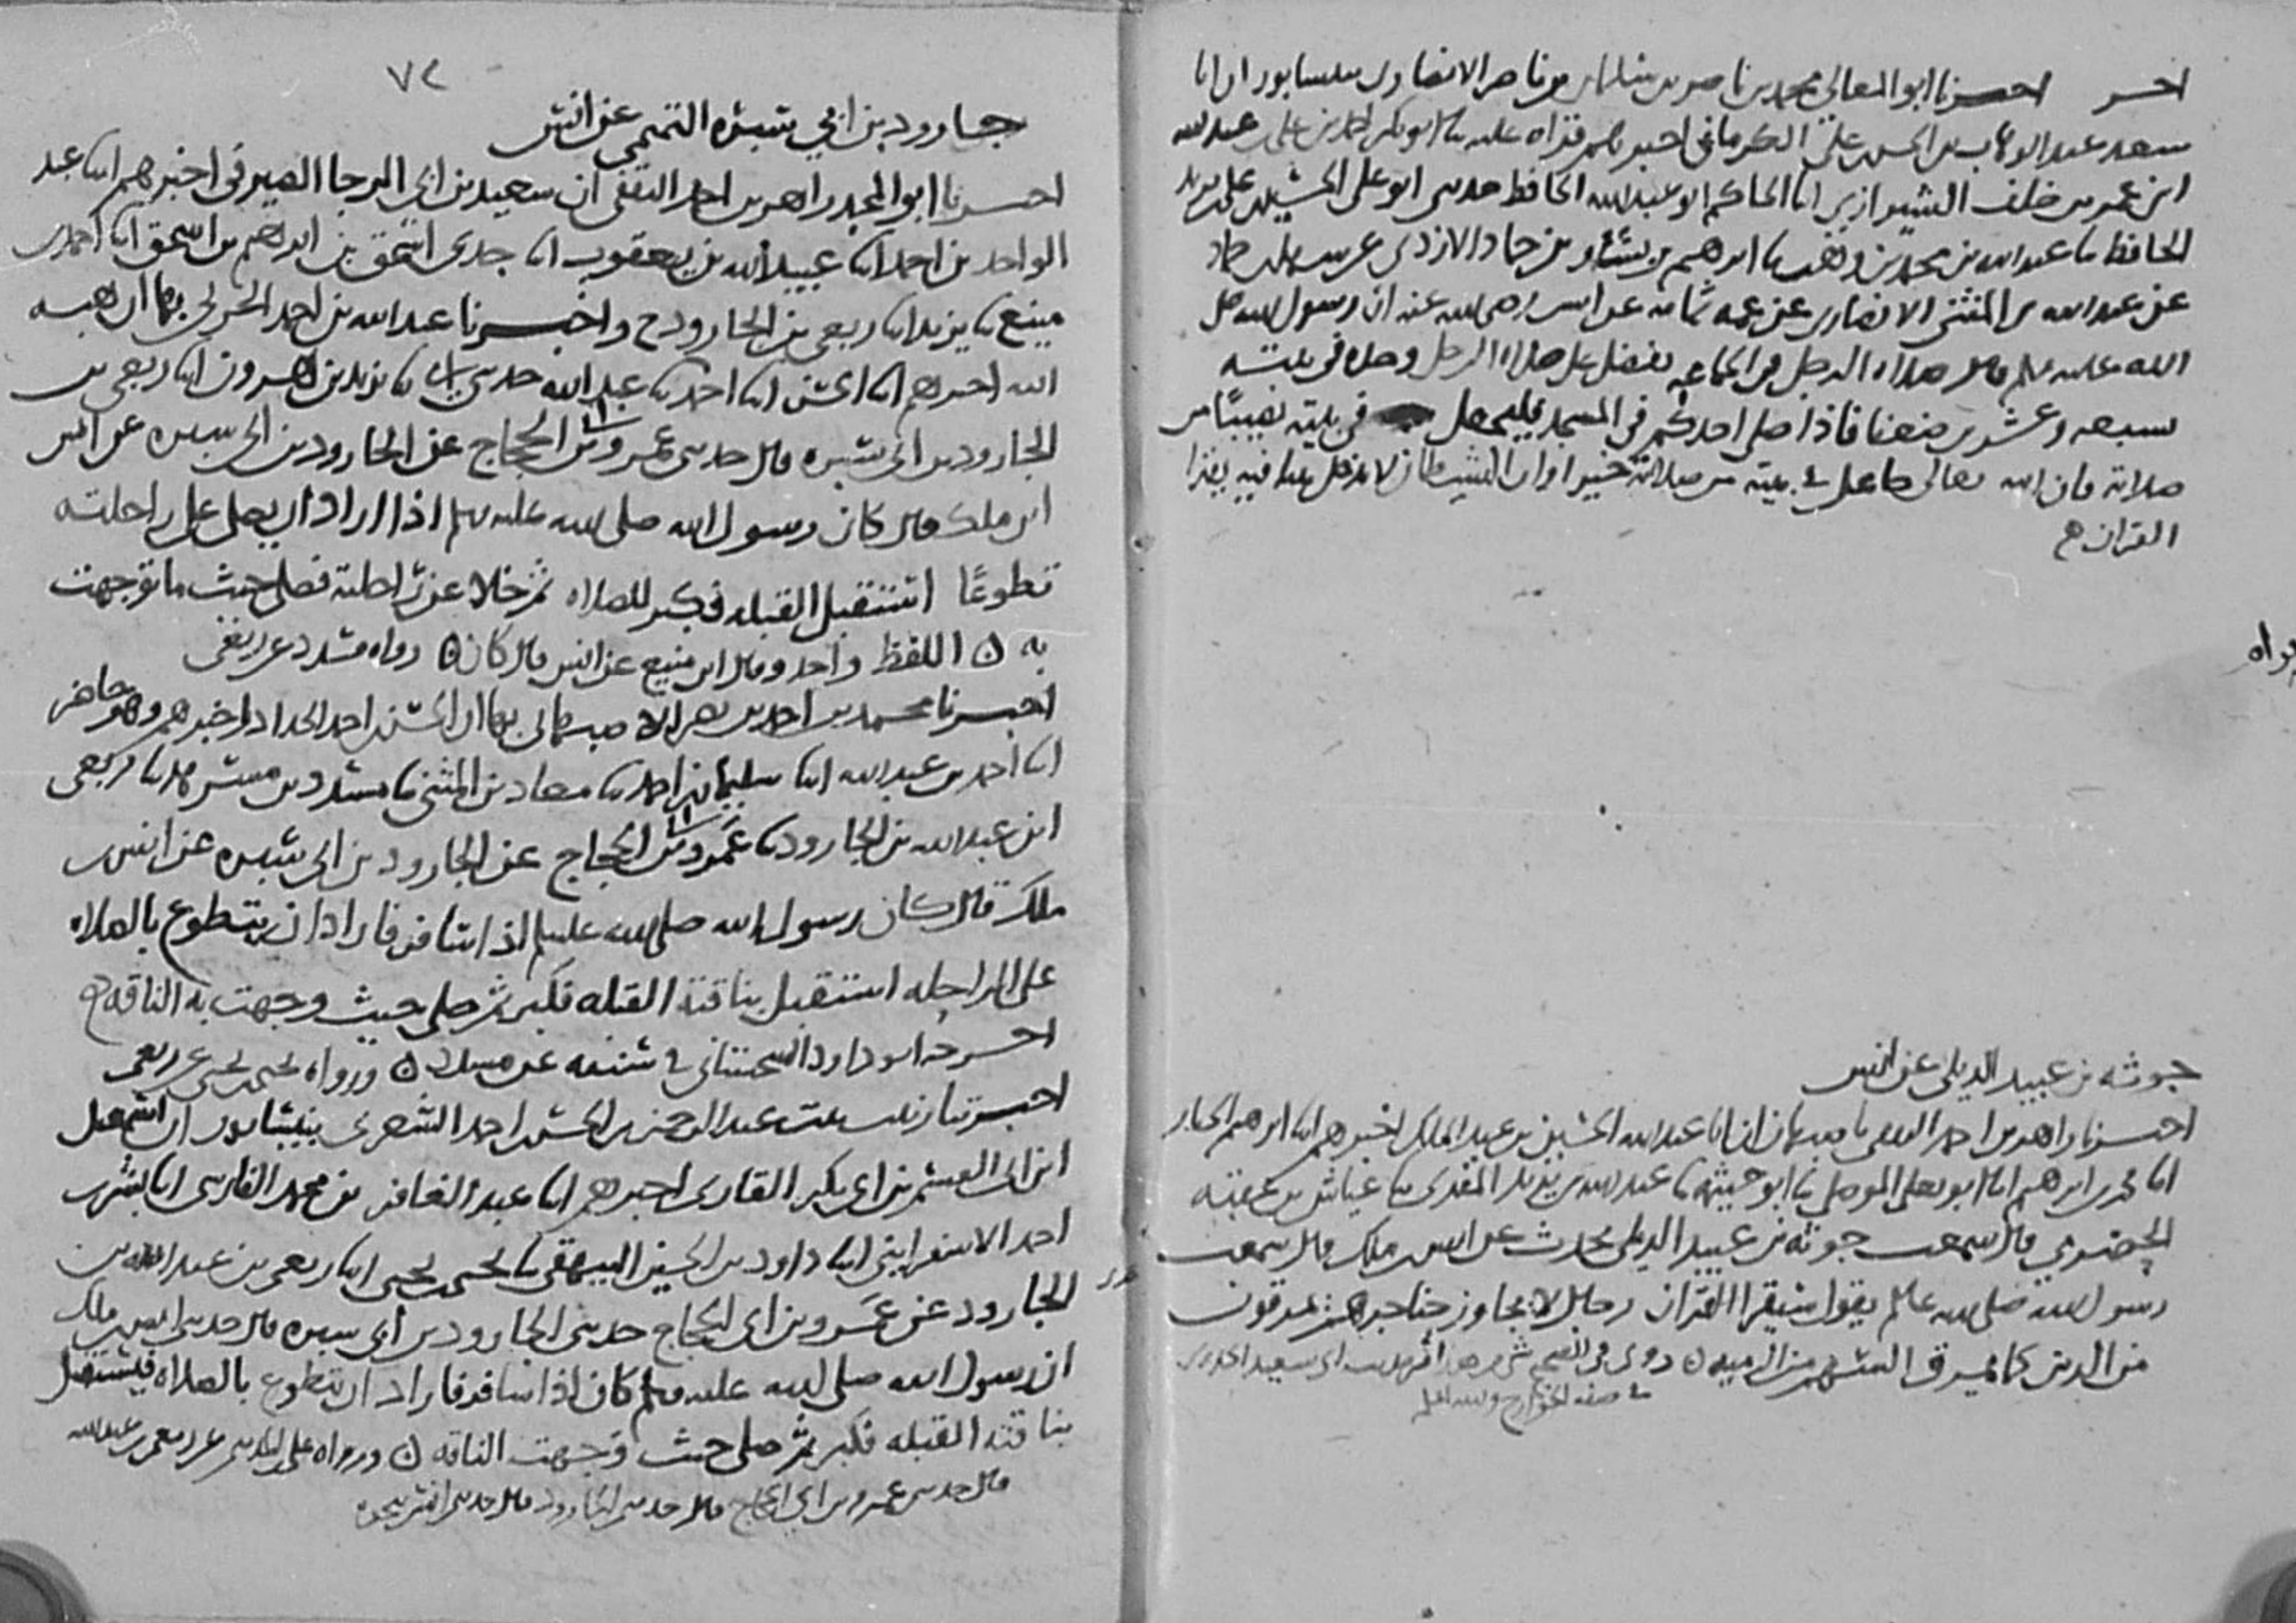 اخر اخبرنا ابو المعالي محمد بن ناصر بن سلمان بن ناصر الانصاري بنيسابور ان ابا
سعد عبد الوهاب بن الحسن علي الكرماني اخبرهم قراه عليه انا ابو بكر احمد بن علي عبد الله
ابن عمر بن خلف الشيرازي انا الحاكم ابو عبد الله الحافظ حدثني ابو علي الحسين بن علي بن يزيد
الحافظ نا عبد الله بن محمد بن وهب نا ابرهيم بن بن حماد الازدي عن
عن عبد الله بن المثنى الانصاري عن عمه ثمامه عن انس رضي الله عنه ان رسول الله صلى
الله عليه وسلم قال صلاه الرجل في الجماعه تفضل على صلاه الرجل وحده في بيته
سبعه وعشرين ضعفا فاذا صلى احدكم في المسجد فليجعل في بيته نصيبا من
صلاته فان الله تعالى جاعل في بيته من صلاته خيرا وان الشيطان لا يدخل بيتا فيه يقرا
القران
جوثه بن عبيد الديلي عن انس
اخبرنا زاهر بن احمد الثقفي باصبهان ان ابا عبد الله الحسين بن عبد الملك اخبرهم انا ابرهيم
انا محمد بن ابرهيم انا ابو يعلى الموصلي نا ابو خيثمه نا عبد الله بن يزيد المقري نا عياش بن عقبه
الحضرمي قال سمعت جوثه بن عبيد الديلي يحدث عن انس بن ملك قال سمعت
رسول الله صلى الله عليه وسلم يقول سيقرا القران رجال لا يجاوز حناجرهم يمرقون
من الدين كما يمرق السهم من الرميه روي في الصحيح حديث ابي سعيد الخدري
في صفه الخوارج والله اعلم
٧٢
جارود بن ابي سبره التميمي عن انس
اخبرنا ابو المجد زاهر بن احمد الثقفي ان سعيد بن ابي الرجا الصيرفي اخبرهم ابنا عبد
الواحد بن احمد ابنا عبيد الله بن يعقوب ابنا جدي اسحق بن ابراهيم بن اسحق ابنا احمد بن
منيع نا يزيد ابنا ربعي بن الجارود ح واخبرنا عبد الله بن احمد الحربي بها ان هبه
الله اخبرهم ابنا الحسن ابنا احمد نا عبد الله حدثني ابي نا يزيد بن هرون ابنا ربعي بن
الجارود بن ابي سبره قال حدثني عمرو بن ابي الحجاج عن الجارود بن ابي سبره عن انس
ابن ملك قال كان رسول الله صلى الله عليه وسلم اذا اراد ان يصلي على راحلته
تطوعا استقبل القبله فكبر للصلاه ثم خلا عن راحلته فصلى حيث ما توجهت
به اللفظ واحد وقال ابن منيع عن انس قال كان رواه مسدد عن ربعي
اخبرنا محمد بن احمد بن نصر الاصبهاني بها ان الحسن بن احمد الحداد اخبرهم وهو حاضر
ابنا احمد بن عبد الله ابنا سليمان بن احمد نا معاذ بن المثنى نا مسدد بن مسرهد نا ربعي
ابن عبد الله بن الجارود نا عمرو بن ابي الحجاج عن الجارود بن ابي سبره عن انس بن
ملك قال كان رسول الله صلى الله عليه وسلم اذا سافر فاراد ان يتطوع بالصلاه
على الراحله استقبل بناقته القبله فكبر ثم صلى حيث وجهت به الناقه
اخرجه ابو داود السجستاني في سننه عن مسدد ورواه يحيى بن يحيى عن ربعي
اخبرتنا زينب بنت عبد الرحمن بن الحسن احمد الشعري بنيسابور ان اسمعيل
ابن ابي القسم بن ابي بكر القاري اخبرهم ابنا عبد الغافر بن محمد الفارسي ابنا بشر بن
احمد الاسفرايني ابنا داود بن الحسين البيهقي نا يحيى بن يحيى ابنا ربعي بن عبد الله بن
الجارود عن عمرو بن ابي الحجاج حدثني الجارود بن ابي سبره قال حدثني انس بن ملك
ان رسول الله صلى الله عليه وسلم كان اذا سافر فاراد ان يتطوع بالصلاه فيستقبل
بناقته القبله فكبر ثم صلى حيث وجهت الناقه ورواه علي بن المديني عن ربعي بن عبد الله
قال حدثني عمرو بن ابي الحجاج قال حدثني الجارود قال حدثني انس بنحوه